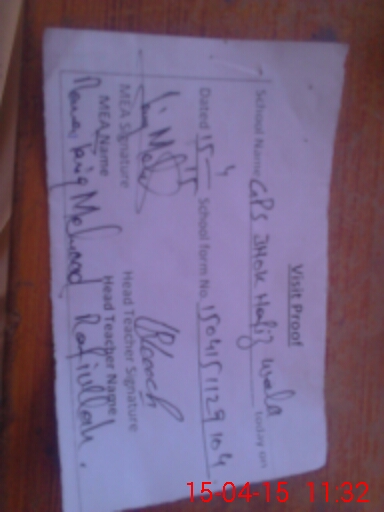 Visit Proof
School Name GPS JHOK Hafiz wala today on
Dated 15-4-15 School form No. 1504151129104
MEA Signature Head Teacher Signature
MEA Name Head Teacher Name
Tariq Mahmood Rafiullah.
15-04-15 11:32